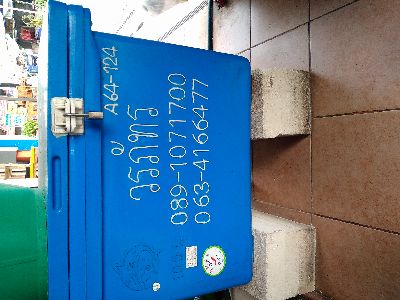 A64-124
วรภัทร
089-1071700
063-4166477